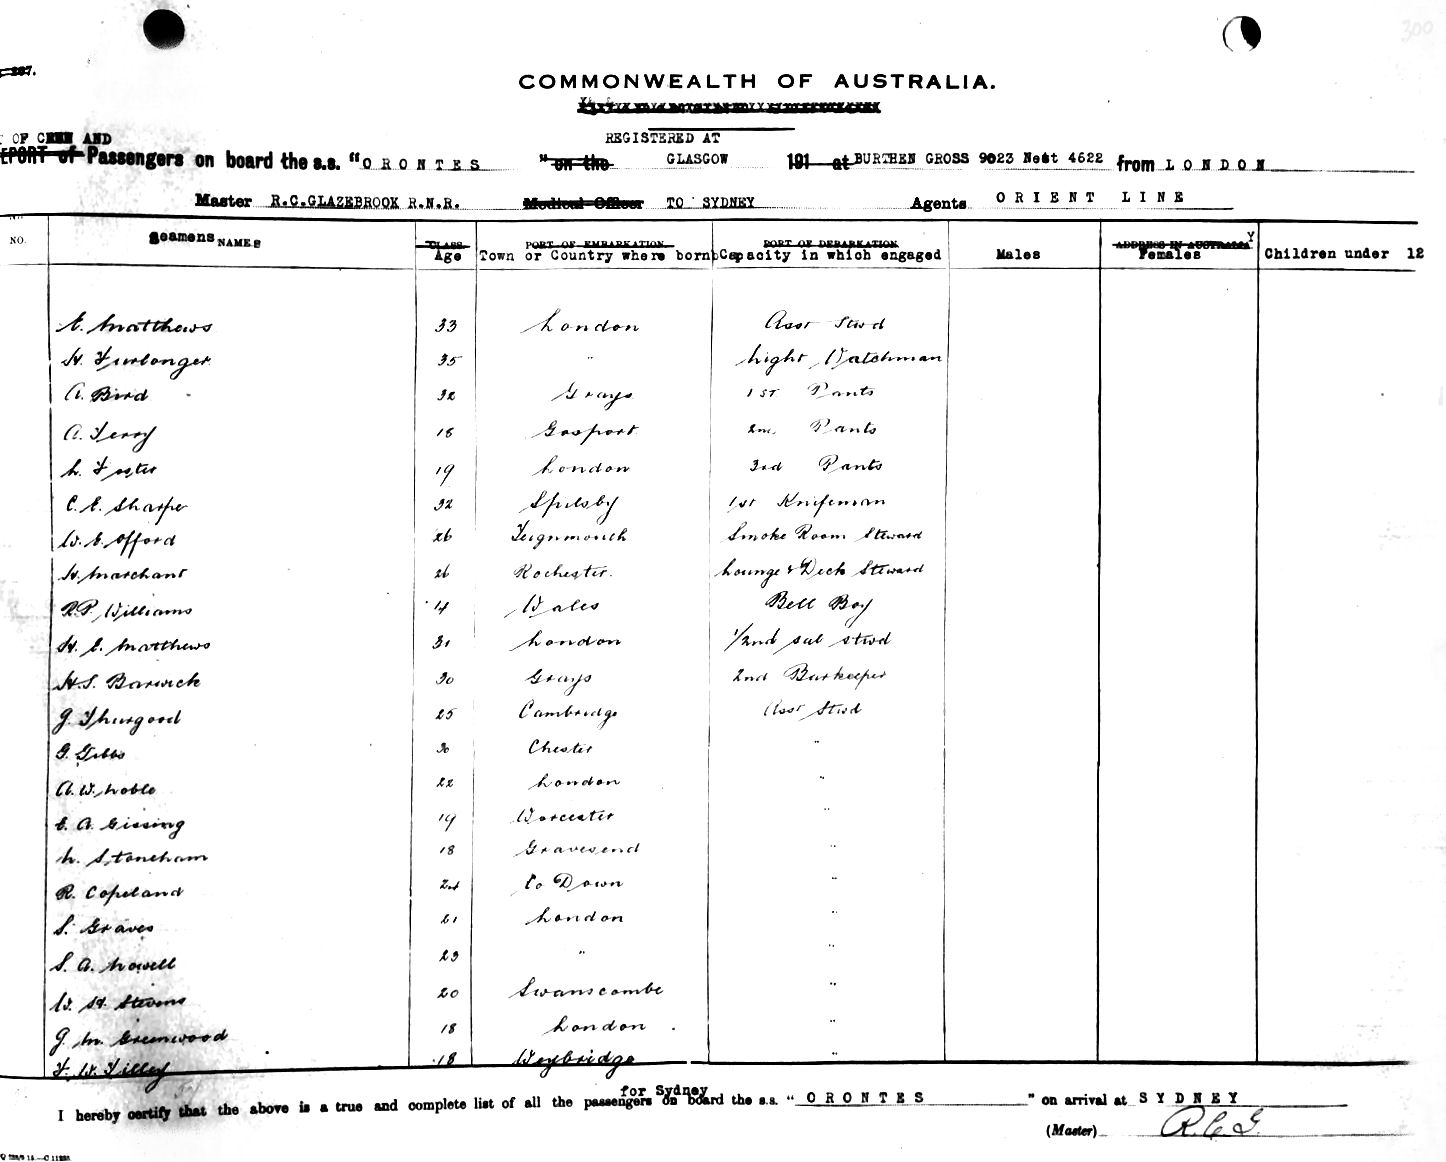 300
COMMONWEALTH OF AUSTRALIA.
OF CREW AND
REGISTERED AT
REPORT of Passengers on board the s.s. "ORONTES" on the GLASGOW 191 at BURTHEN GROSS 9023 Nett 4622 from LONDON
Master R.C.GLAZEBROOK R.N.R. Medical Officer TO SYDNEY Agents ORIENT LINE
NO. Seamens NAMES CLASS. PORT OF EMBARKATION PORT OF DEBARKATION ADDRESS IN AUSTRALIA
Age Town or Country where born Capacity in which engaged Males Females Children under 12
E. Matthews 33 London Asst Stwd
H. Furlonger 35 " Night Watchman
A. Bird 32 Grays 1st Pants
A. Terry 18 Gosport 2nd Pants
L. Foster 19 London 3rd Pants
C. E. Sharpe 32 Spilsby 1st Knifeman
W. E. Offord 26 Teignmouth Smoke Room Steward
H. Marchant 26 Rochester. Lounge & Deck Steward
R.P. Williams 14 Wales Bell Boy
H. E. Matthews 31 London 1/2nd sal stwd
H.S. Barwick 30 Grays 2nd Barkeeper
G. Thurgood 25 Cambridge Asst Stwd
G. Gibbs 30 Chester "
A. W. Noble 22 London "
E. A. Gissing 19 Worcester "
N. Stoneham 18 Gravesend "
R. Copeland 24 Co Down "
S. Graves 21 London "
S. A. Howell 23 " "
W. H. Stevens 20 Swanscombe "
G. M. Greenwood 18 London "
F. W. Tilley 18 Weybridge "
for Sydney
I hereby certify that the above is a true and complete list of all the passengers on board the s.s. "ORONTES" on arrival at SYDNEY
(Master) R.C.G.